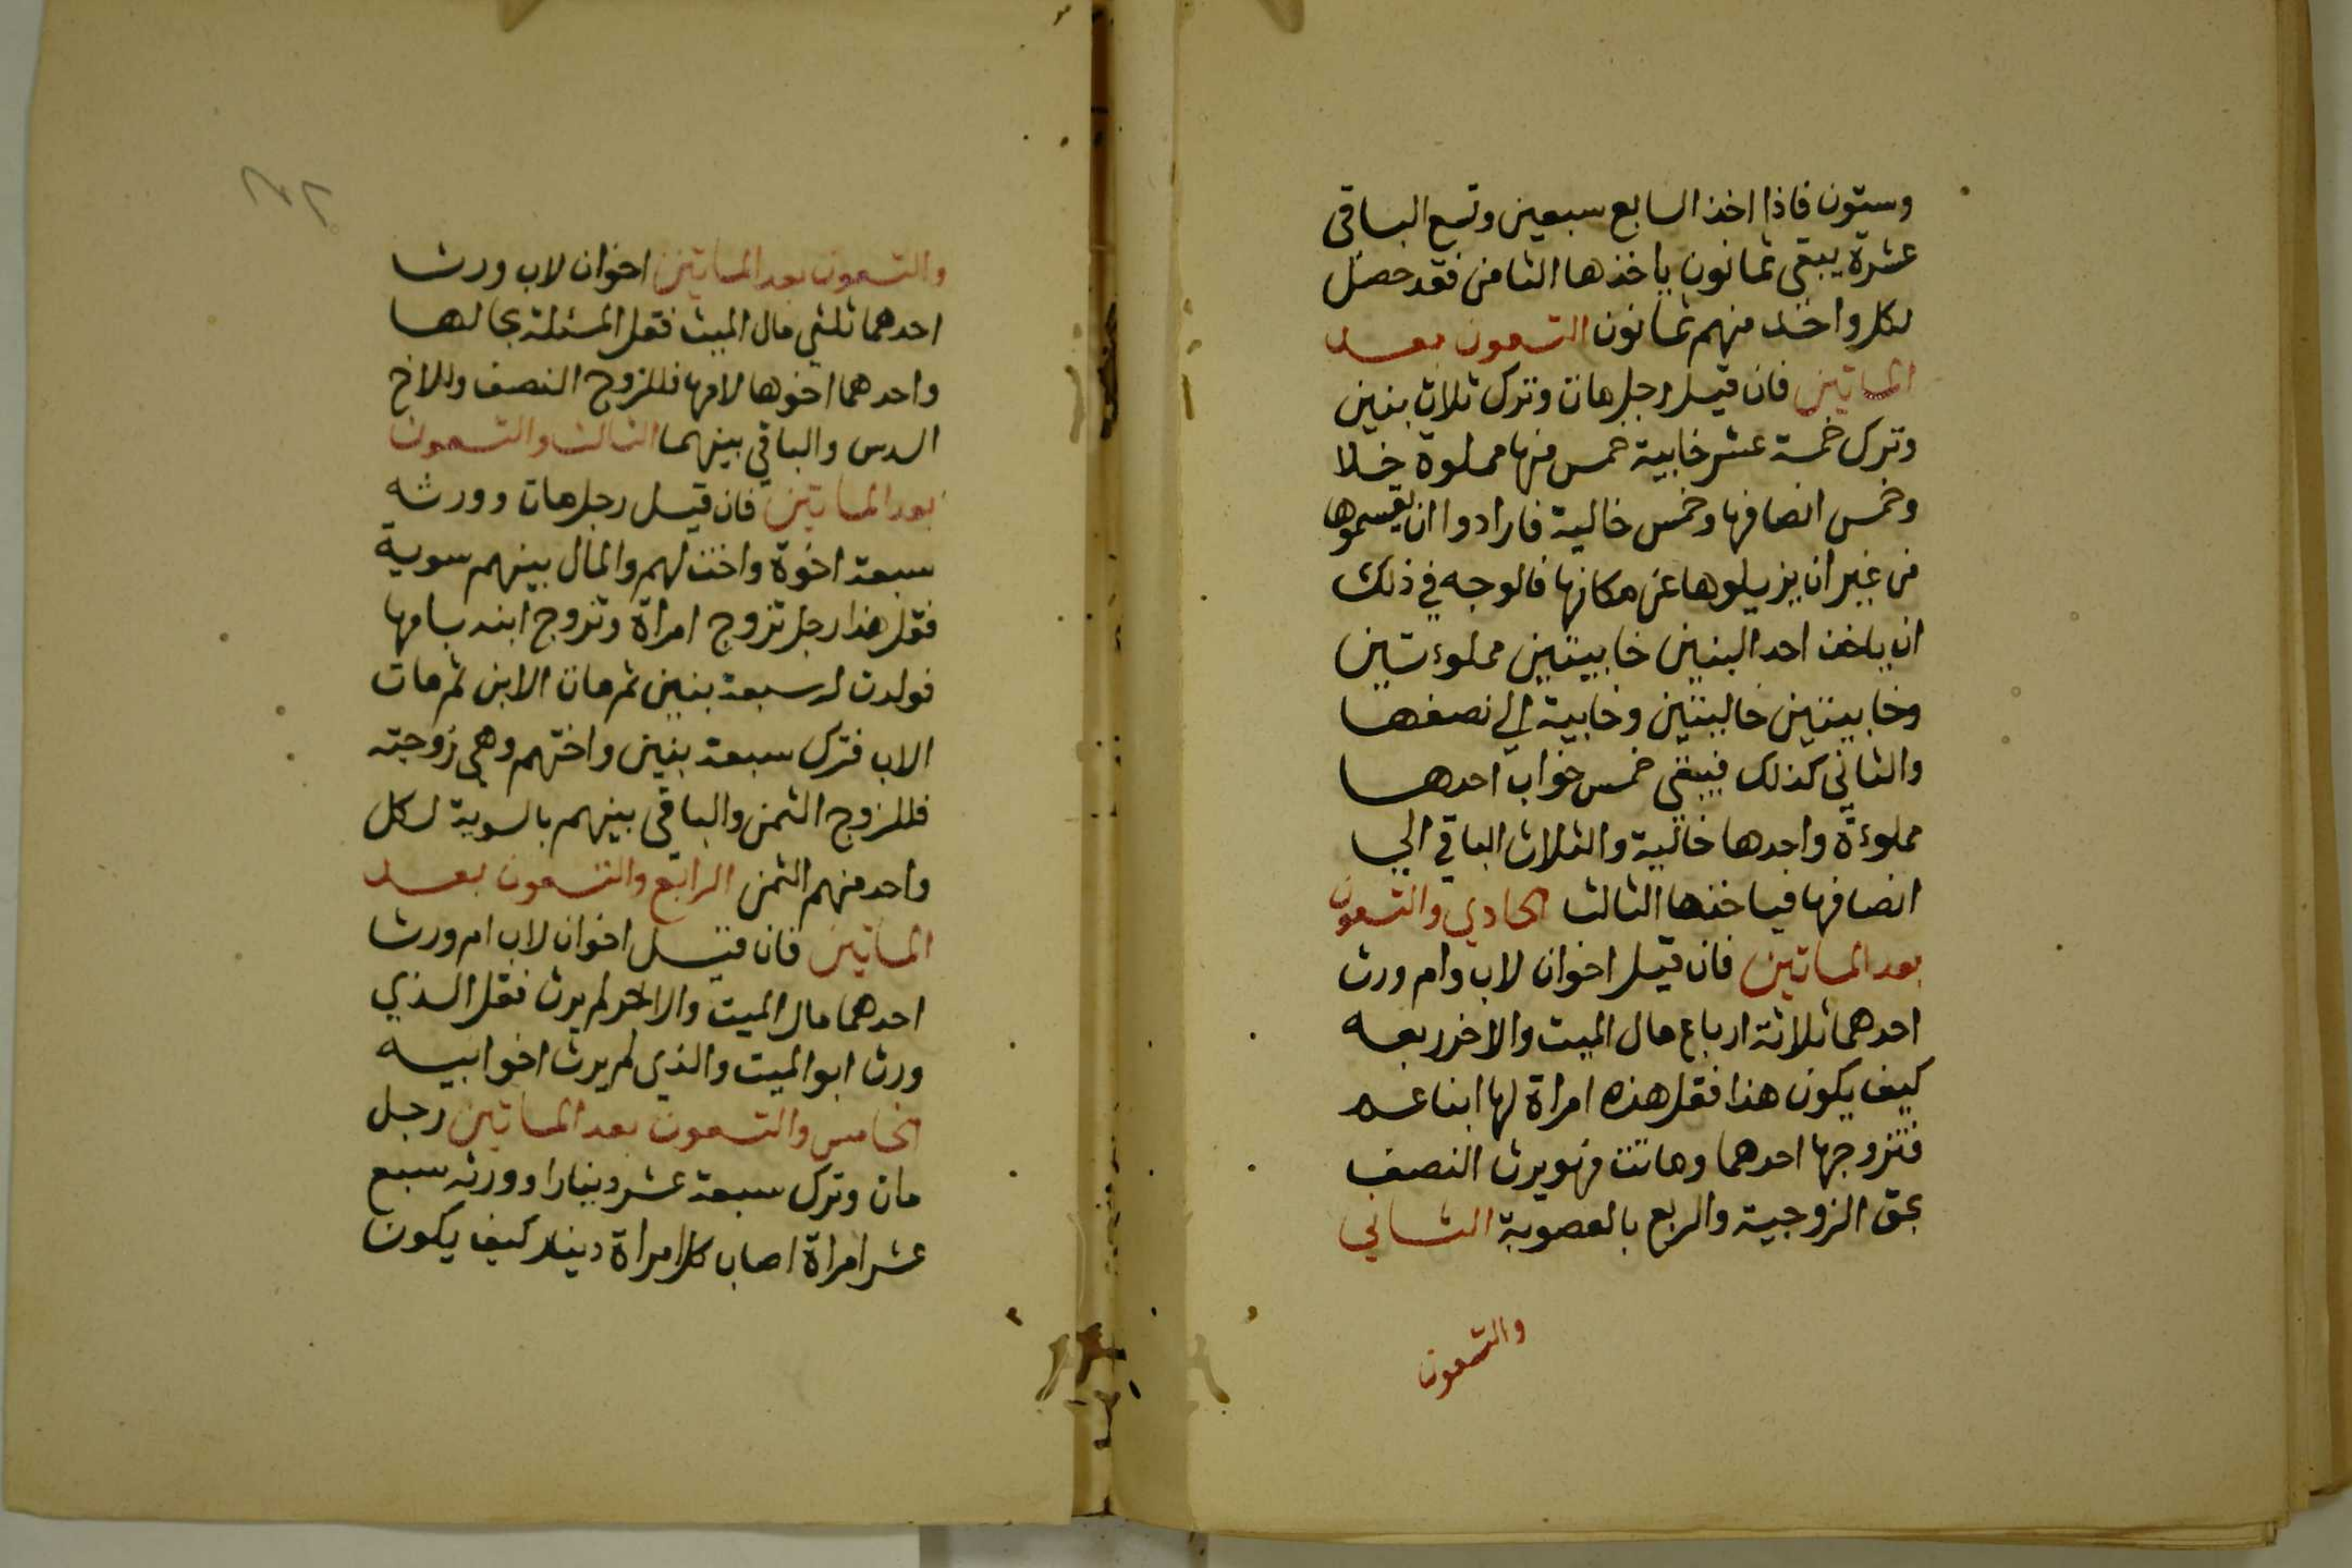 وستون فاذا اخذ السابع سبعين وتسع الباقي
عشرة يبقى ثمانون ياخذها الثامن فقد حصل
لكل واحد منهم ثمانون التسعون بعد
الماتين فان قيل رجل مات وترك ثلاث بنين
وترك خمسة عشر خابية خمس منها مملوة خلا
وخمس انصافها وخمس خالية فارادوا ان يقسموها
من غير ان يزيلوها عن مكانها فالوجه في ذلك
ان ياخذ احد البنين خابيتين مملوءتين
وخابيتين خاليتين وخابية الي نصفها
والثاني كذلك فيبقي خمس خواب احدها
مملوءة واحدها خالية والثلاث الباقي الي
انصافها فياخذها الثالث الحادي والتسعون
بعد الماتين فان قيل اخوان لاب وام ورث
احدهما ثلاثة ارباع مال الميت والاخر ربعه
كيف يكون هذا فقل هذه امراة لها ابنا عم
فتزوجها احدهما وماتت فهو يرث النصف
بحق الزوجية والربع بالعصوبة الثاني
والتسعون
والتسعون بعد الماتين اخوان لاب ورث
احدهما ثلثي مال الميت فقل المسئلة بحالها
واحدهما اخوها لامها فللزوج النصف وللاخ
السدس والباقي بينهما الثالث والتسعون
بعد الماتين فان قيل رجل مات وورثه
سبعة اخوة واخت لهم والمال بينهم سوية
فقل هذا رجل تزوج امراة وتزوج ابنه بامها
فولدت له سبعة بنين ثم مات الابن ثم مات
الاب فترك سبعة بنين واختهم وهي زوجته
فللزوج الثمن والباقي بينهم بالسوية لكل
واحد منهم الثمن الرابع والتسعون بعد
الماتين فان قيل اخوان لاب ام ورث
احدهما مال الميت والاخر لم يرث فقل الذي
ورث ابو الميت والذي لم يرث اخو ابيه
الخامس والتسعون بعد الماتين رجل
مات وترك سبعة عشر دينارا وورثه سبع
عشر امراة اصاب كل امراة دينار كيف يكون